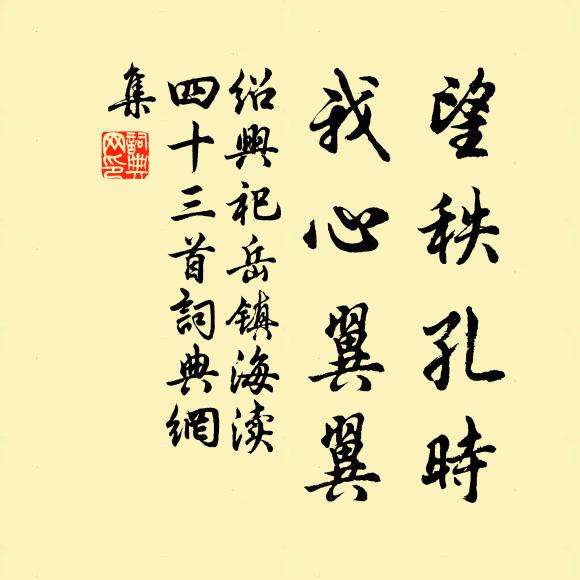 望秩孔時
我心翼翼
绍興祀岳镇海渎
四十三首詞典網
集
詞典
网印